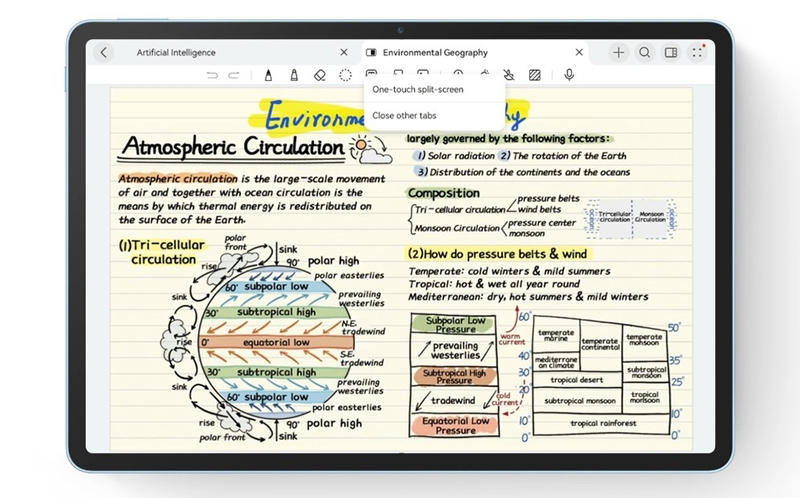 Artificial Intelligence
Environmental Geography
One-touch split-screen
Close other tabs
Atmospheric Circulation
Atmospheric circulation is the large-scale movement
of air and together with ocean circulation is the
means by which thermal energy is redistributed on
the surface of the Earth.
(1)Tri-cellular
circulation
polar
front
sink
rise
90°
polar high
polar easterlies
60°
subpolar low
sink
prevailing
westerlies
30°
subtropical high
N.E.
tradewind
rise
0°
equatorial low
S.E.
tradewind
30°
subtropical high
sink
prevailing
westerlies
60°
subpolar low
polar easterlies
rise
90°
polar high
polar front
sink
largely governed by the following factors:
1) Solar radiation 2) The rotation of the Earth
3) Distribution of the continents and the oceans
Composition
Tri-cellular circulation
pressure belts
wind belts
Monsoon Circulation
pressure center
monsoon
Tri-cellular
circulation
Monsoon
Circulation
(2)How do pressure belts & wind
Temperate: cold winters & mild summers
Tropical: hot & wet all year round
Mediterranean: dry, hot summers & mild winters
Subpolar Low
Pressure
prevailing
westerlies
Subtropical High
Pressure
tradewind
Equatorial Low
Pressure
warm
current
cold
current
60°
40
30
20
10°
0°
temperate
marine
temperate
continental
temperate
monsoon
mediterrane
an climate
subtropical
monsoon
tropical desert
subtropical monsoon
tropical
monsoon
tropical rainforest
50°
35°
25°
10°
0°